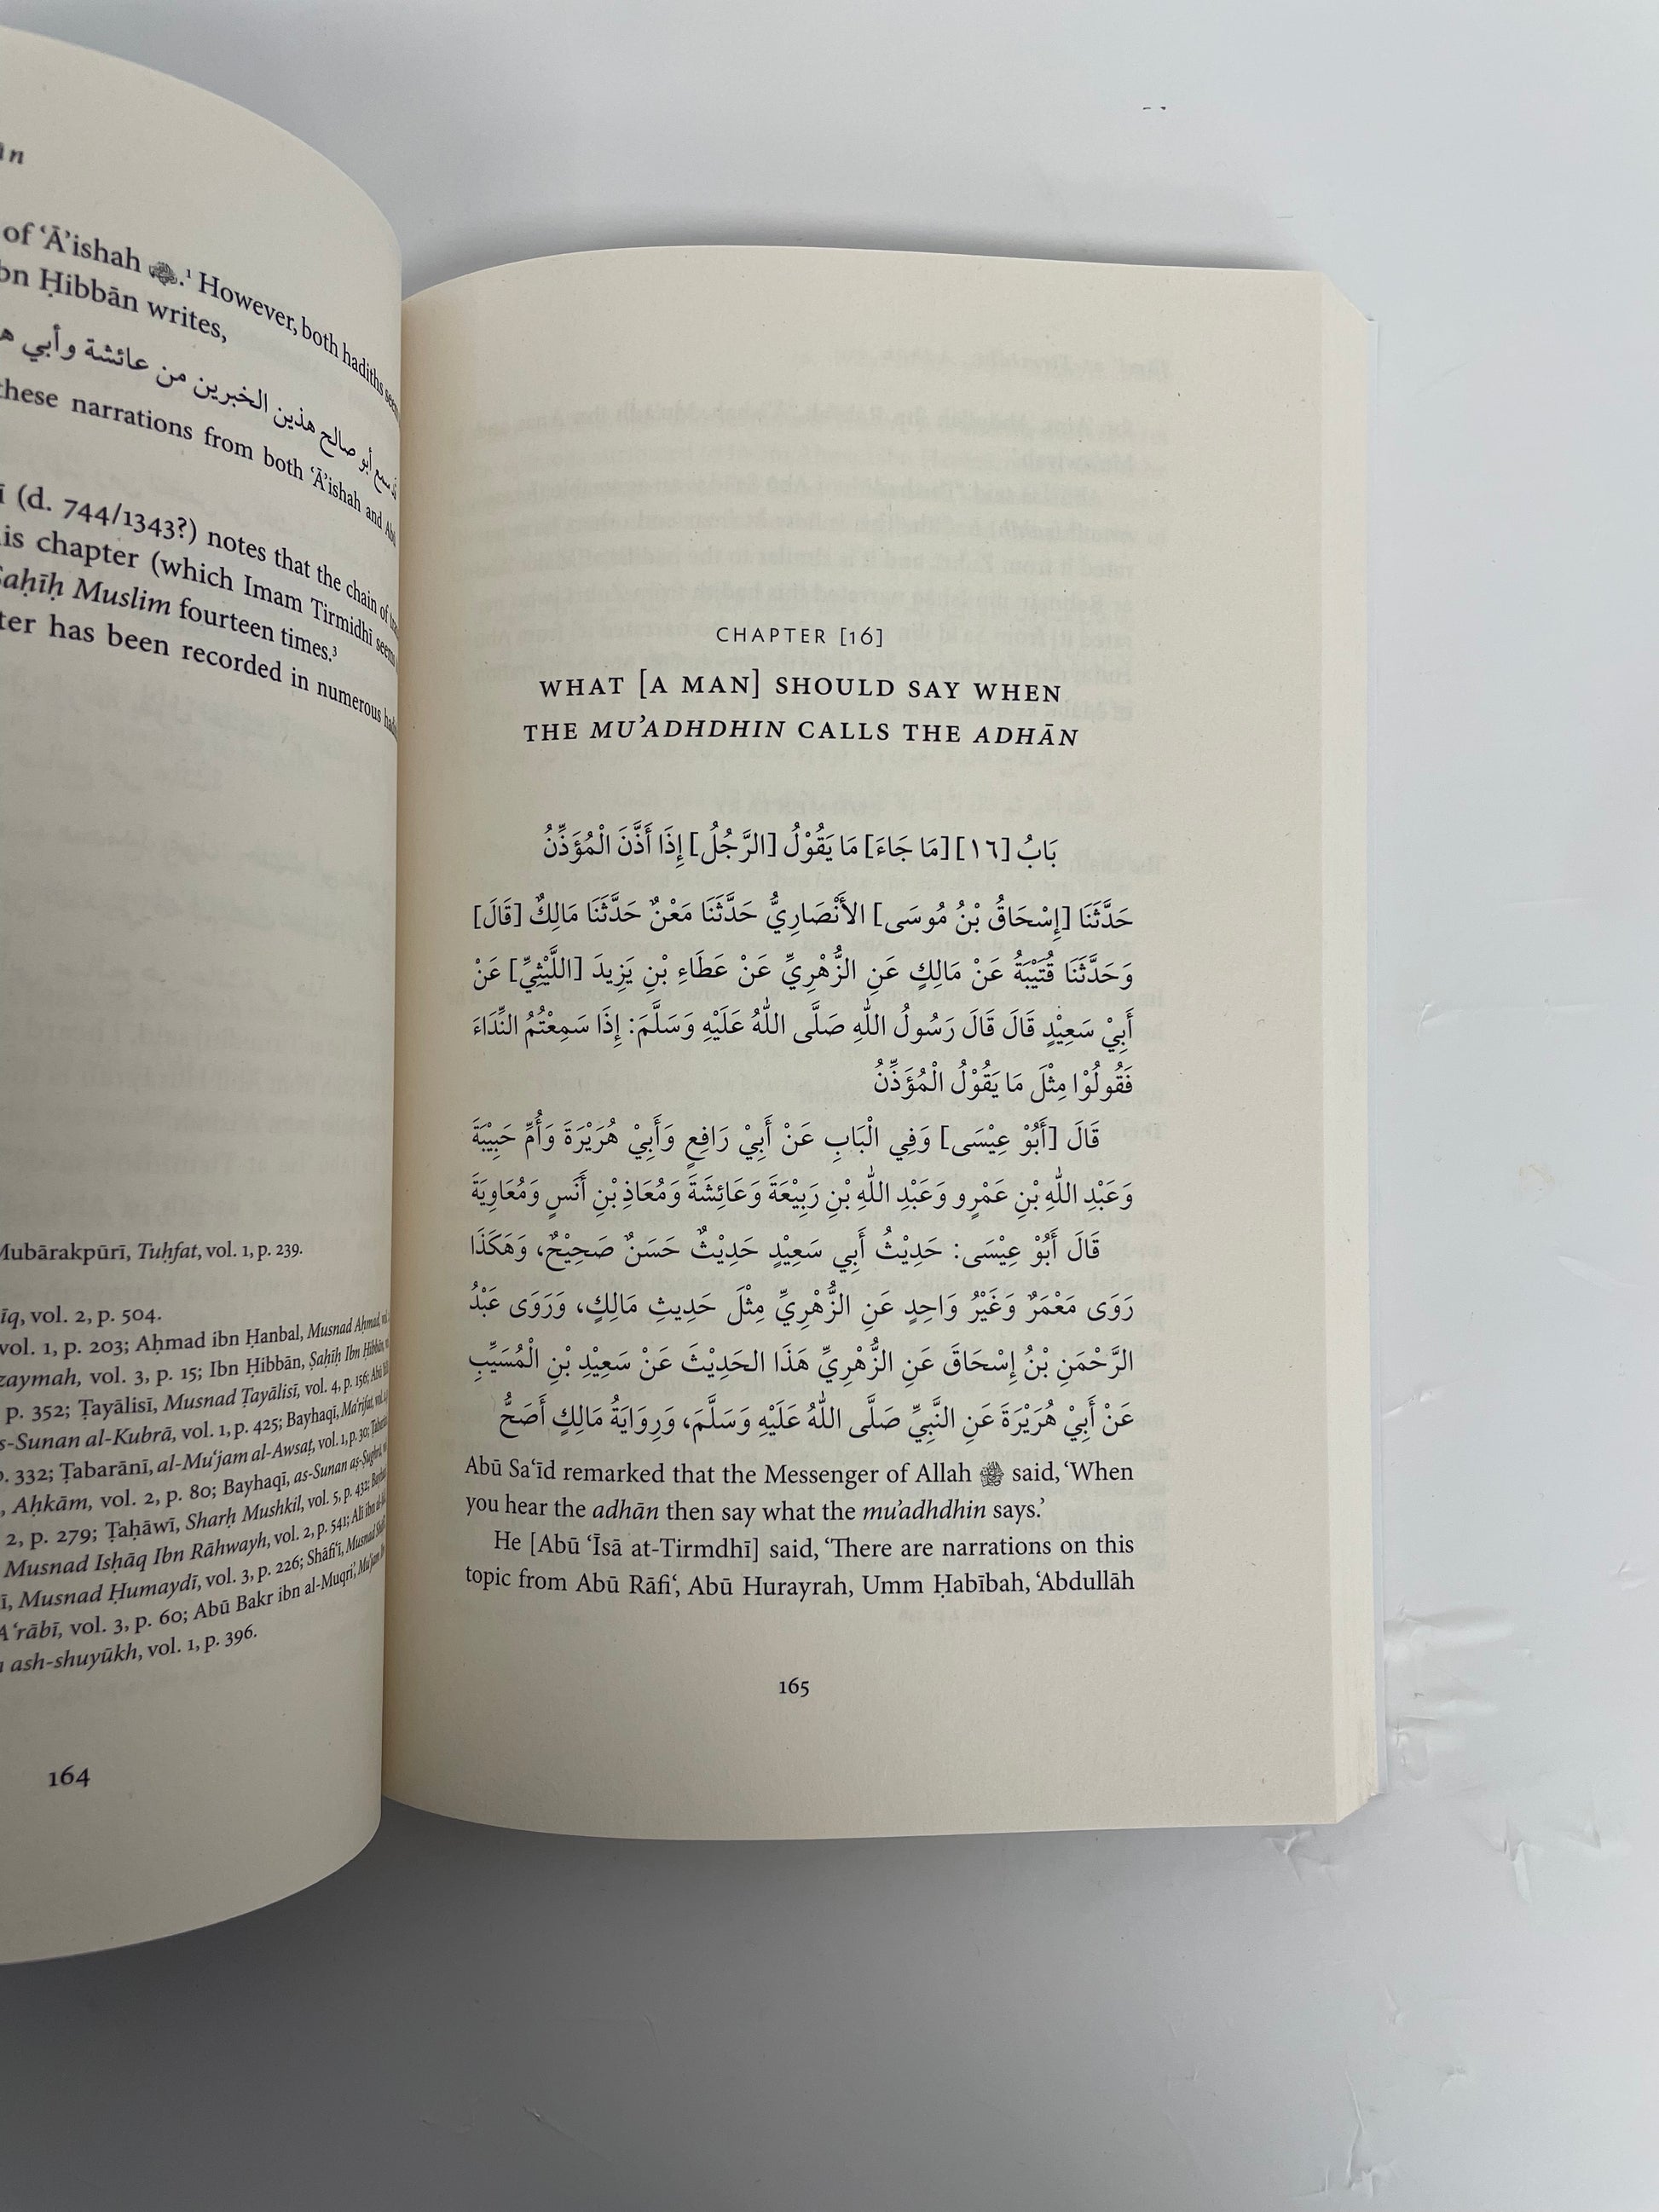 ān
of ʿĀ’ishah .¹ However, both hadiths seem
bn Ḥibbān writes,
سمع أبو صالح هذين الخبرين من عائشة وأبي
these narrations from both ʿĀ’ishah and Abū
ī (d. 744/1343?) notes that the chain of
is chapter (which Imam Tirmidhī seems
Ṣaḥīḥ Muslim fourteen times.³
ter has been recorded in numerous
Mubārakpūrī, Tuḥfat, vol. 1, p. 239.
īq, vol. 2, p. 504.
vol. 1, p. 203; Aḥmad ibn Ḥanbal, Musnad Aḥmad,
zaymah, vol. 3, p. 15; Ibn Ḥibbān, Ṣaḥīḥ Ibn Ḥibbān,
p. 352; Ṭayālisī, Musnad Ṭayālisī, vol. 4, p. 156;
s-Sunan al-Kubrā, vol. 1, p. 425; Bayhaqī, Maʿrifat,
p. 332; Ṭabarānī, al-Muʿjam al-Awsaṭ, vol. 1, p. 30;
, Aḥkām, vol. 2, p. 80; Bayhaqī, as-Sunan aṣ-Ṣughrā,
2, p. 279; Ṭaḥāwī, Sharḥ Mushkil, vol. 5, p. 432;
Musnad Isḥāq Ibn Rāhwayh, vol. 2, p. 541;
ī, Musnad Ḥumaydī, vol. 3, p. 226; Shāfiʿī, Musnad
Aʿrābī, vol. 3, p. 60; Abū Bakr ibn al-Muqri’,
ash-shuyūkh, vol. 1, p. 396.
164
CHAPTER [16]
WHAT [A MAN] SHOULD SAY WHEN
THE MU’ADHDHIN CALLS THE ADHĀN
بَابُ [١٦] [مَا جَاءَ] مَا يَقُوْلُ [الرَّجُلُ] إِذَا أَذَّنَ الْمُؤَذِّنُ
حَدَّثَنَا [إِسْحَاقُ بْنُ مُوسَى] الأَنْصَارِيُّ حَدَّثَنَا مَعْنٌ حَدَّثَنَا مَالِكٌ [قَالَ]
وَحَدَّثَنَا قُتَيْبَةُ عَنْ مَالِكٍ عَنِ الزُّهْرِيِّ عَنْ عَطَاءِ بْنِ يَزِيدَ [اللَّيْثِيِّ] عَنْ
أَبِيْ سَعِيْدٍ قَالَ قَالَ رَسُولُ اللهِ صَلَّى اللهُ عَلَيْهِ وَسَلَّمَ: إِذَا سَمِعْتُمُ النِّدَاءَ
فَقُولُوْا مِثْلَ مَا يَقُوْلُ الْمُؤَذِّنُ
قَالَ [أَبُوْ عِيْسَى] وَفِي الْبَابِ عَنْ أَبِيْ رَافِعٍ وَأَبِيْ هُرَيْرَةَ وَأُمِّ حَبِيْبَةَ
وَعَبْدِ اللهِ بْنِ عَمْرٍو وَعَبْدِ اللهِ بْنِ رَبِيْعَةَ وَعَائِشَةَ وَمُعَاذِ بْنِ أَنَسٍ وَمُعَاوِيَةَ
قَالَ أَبُوْ عِيْسَى: حَدِيْثُ أَبِي سَعِيْدٍ حَدِيْثٌ حَسَنٌ صَحِيْحٌ، وَهَكَذَا
رَوَى مَعْمَرٌ وَغَيْرُ وَاحِدٍ عَنِ الزُّهْرِيِّ مِثْلَ حَدِيثِ مَالِكٍ، وَرَوَى عَبْدُ
الرَّحْمَنِ بْنُ إِسْحَاقَ عَنِ الزُّهْرِيِّ هَذَا الحَدِيْثَ عَنْ سَعِيْدِ بْنِ الْمُسَيِّبِ
عَنْ أَبِيْ هُرَيْرَةَ عَنِ النَّبِيِّ صَلَّى اللهُ عَلَيْهِ وَسَلَّمَ، وَرِوَايَةُ مَالِكٍ أَصَحُّ
Abū Saʿīd remarked that the Messenger of Allah ﷺ said, ‘When
you hear the adhān then say what the mu’adhdhin says.’
He [Abū ʿĪsā at-Tirmdhī] said, ‘There are narrations on this
topic from Abū Rāfiʿ, Abū Hurayrah, Umm Ḥabībah, ʿAbdullāh
165